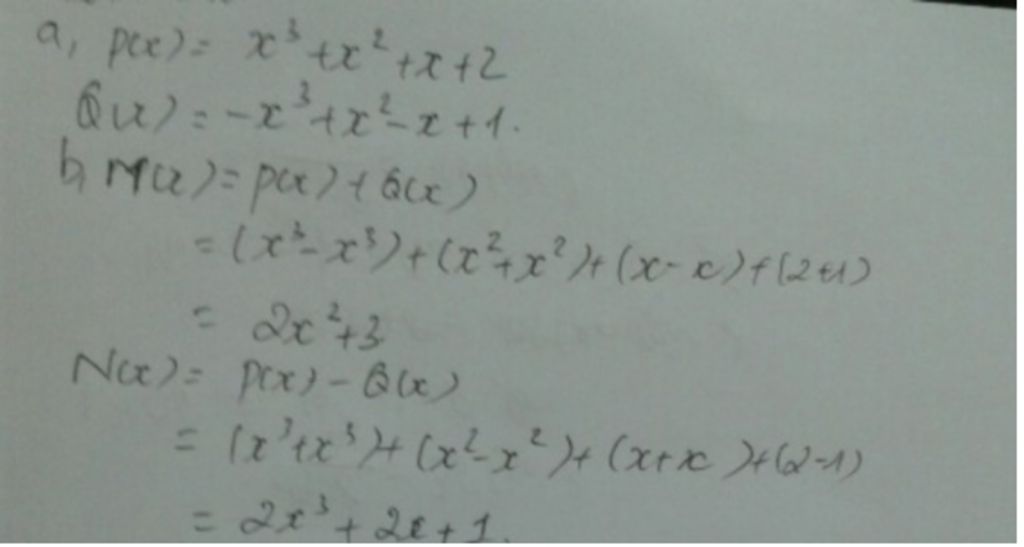 a, P(x) = x³ + x² + x + 2
Q(x) = -x³ + x² - x + 1.
b, M(x) = P(x) + Q(x)
= (x³ - x³) + (x² + x²) + (x - x) + (2+1)
= 2x² + 3
N(x) = P(x) - Q(x)
= (x³ + x³) + (x² - x²) + (x + x) + (2-1)
= 2x³ + 2x + 1.